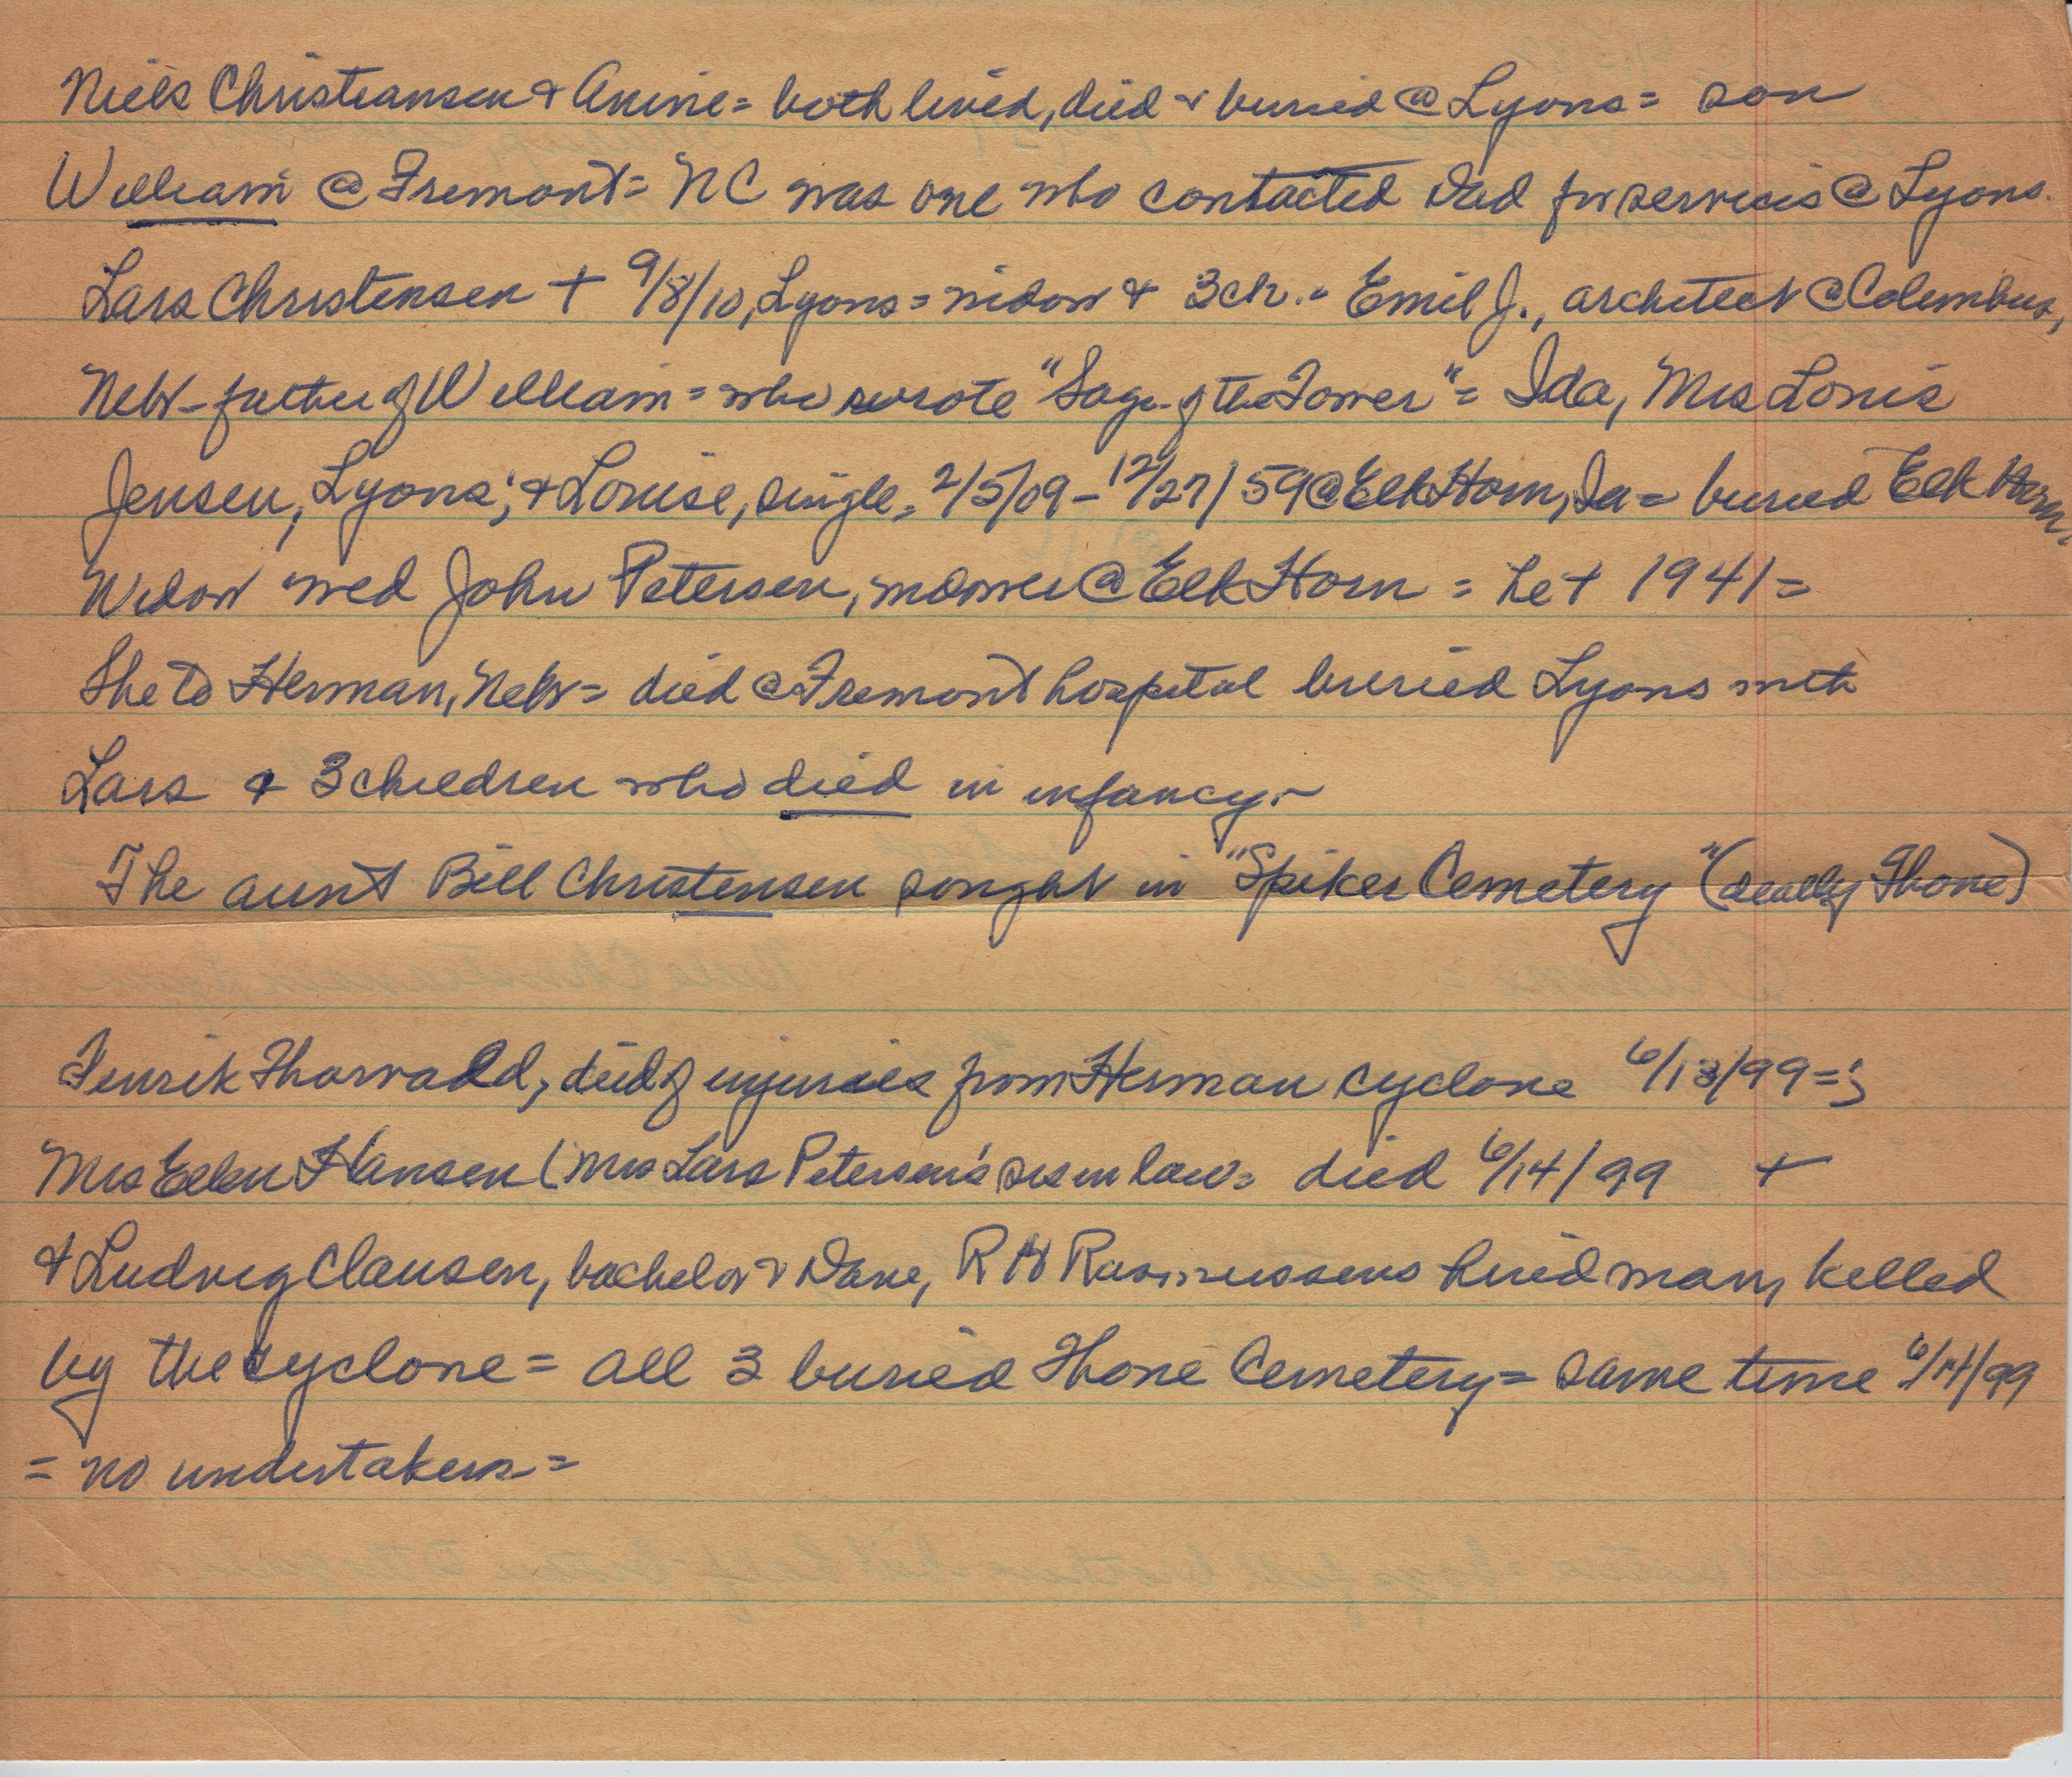 Niels Christiansen & Anine = both lived, died & buried @ Lyons = son
William @ Fremont = NC was one who contacted Dad for services @ Lyons.
Lars Christensen + 9/8/10, Lyons = widow & 3 ch. = Emil J., architect @ Columbus,
Nebr - father of William = who wrote "Saga of the Tower" = Ida, Mrs Louis
Jensen, Lyons; & Louise, single, 2/5/09 - 12/27/59 @ Elk Horn, Ia = buried Elk Horn.
Widow wed John Petersen, widower @ Elk Horn = he + 1941 =
She to Herman, Nebr = died @ Fremont hospital buried Lyons with
Lars & 3 children who died in infancy -
The aunt Bill Christensen sought in "Spiker Cemetery" (really Thone)
Henrik Thorvald, died of injuries from Herman cyclone 6/13/99 = ;
Mrs Ellen Hansen (Mrs Lars Petersen's sis in law = died 6/14/99 +
& Ludvig Clausen, bachelor & Dane, R H Rasmussens hired man, killed
by the cyclone = all 3 buried Thone Cemetery = same time 6/14/99
= no undertakers =